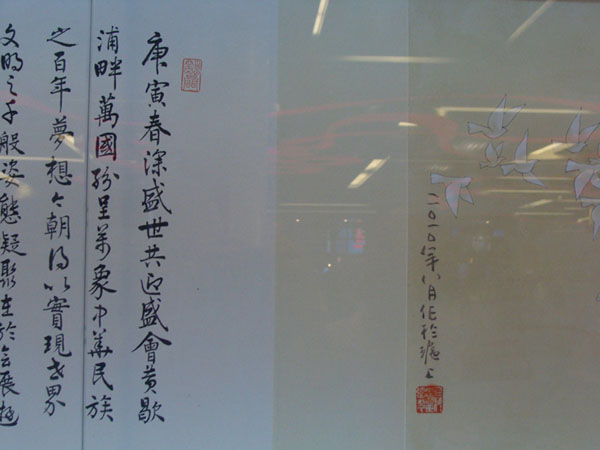 二〇一〇年八月作於滬上
庚寅春深盛世共迎盛會黃歇
浦畔萬國紛呈萬象中華民族
之百年夢想今朝得以實現世界
文明之千般姿態凝聚在於會展